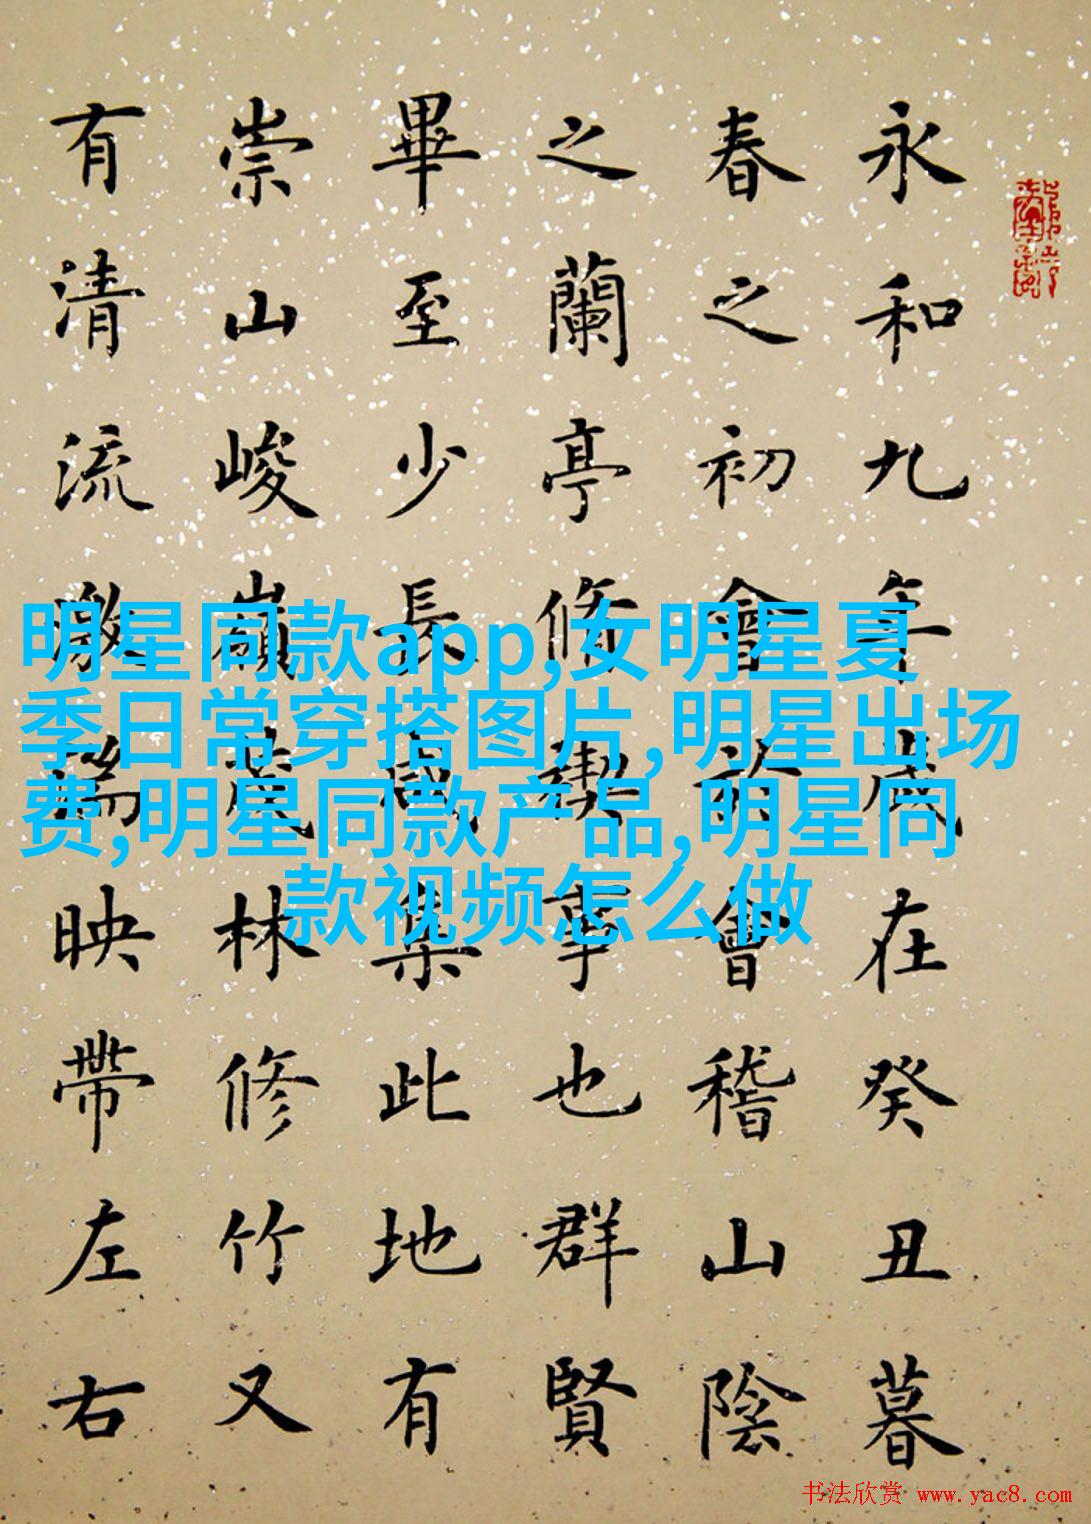 永和九年歲在癸丑暮
春之初會於會稽山陰
之蘭亭修禊事也群賢
畢至少長咸集此地有
崇山峻嶺茂林修竹又
有清流激湍映帶左右
明星同款app,女明星夏
季日常穿搭图片,明星出场
费,明星同款产品,明星同
款视频怎么做
书法欣赏 www.yac8.com